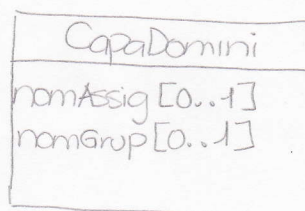 CapaDomini
nomAssig [0..1]
nomGrup [0..1]